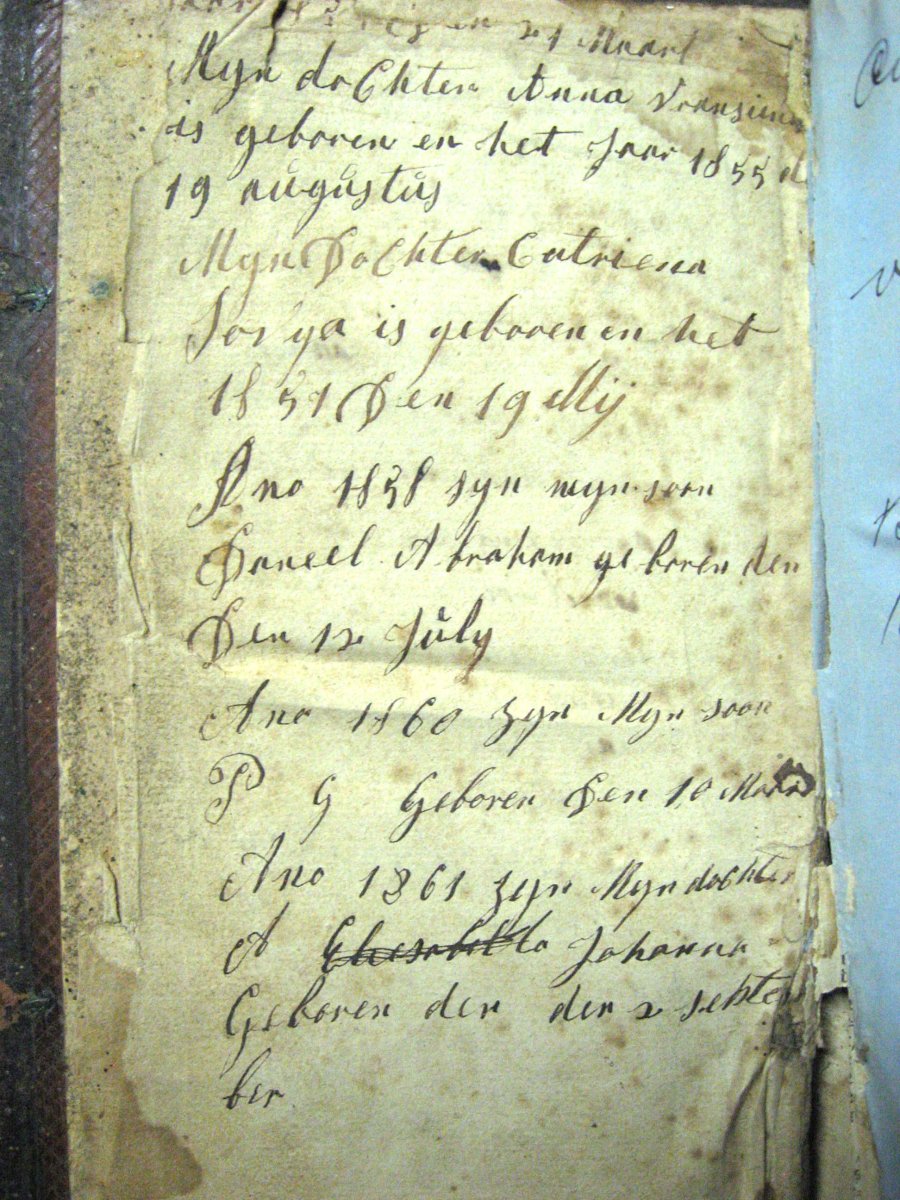 en 21 Maart
Myn dochter Anna
is geboren en het Jaar 1855
19 augustus
Myn Dochter Catriena
is geboren en het
1851 Den 19 Mij
Ano 1858 syn myn soon
Daneel Abraham geboren den
Den 12 July
Ano 1860 zyn Myn soon
P G Geboren Den 10
Ano 1861 zyn Myn dochter
A Johanna
Geboren der der 2 sehte
ber